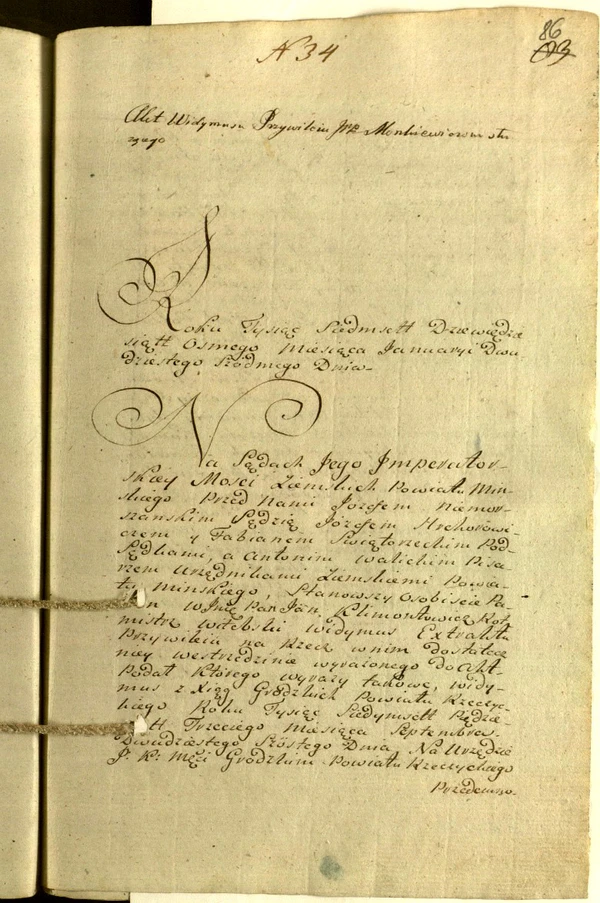 N 34
86
Akt Widymusu Przywileiu JPP Monkiewiczom słu
żącego
Roku Tysiąc Siedmsett Dziewiędzie
siątt Osmego Miesiąca Januaryi Dwu
dziestego Siodmego Dnia
Na Sądach Jego Imperator-
skiey Mosci Ziemskich Powiatu Min-
skiego Przed Nami Jozefem
Sędzią Jozefem
czem y Fabianem Swiętorzeckim Pod-
sędkami, a Antonim Walickim Pisa-
rzem Urzędnikami Ziemskiemi Powia-
tu Minskiego, Stanowszy Osobiscie Pa-
tron WJmć Pan Jan Klimontowicz Rot
mistrz Witebski Widymus Extraktu
Przywileiu na Rzecz w nim dostatecz
niey we srzedzinie wyrażonego do Akt
Podał Ktorego wyrazy takowe, widy-
mus z Xiąg Grodzkich Powiatu Rzeczyc-
kiego Roku Tysiąc Siedymsett
Trzeciego Miesiąca Septembra
Dwudziestego Szostego Dnia Na Urzędzie
J. K. Mści Grodzkim Powiatu Rzeczyckiego
Przedemno